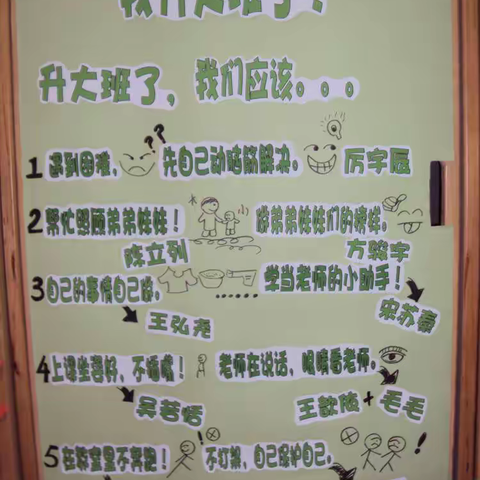 我们是大班了！
升大班了，我们应该。。。
1 遇到困难，?? 先自己动脑筋解决。 厉宇辰
2 帮忙照顾弟弟妹妹！ 做弟弟妹妹们的榜样。
陈立列 方毅宇
3 自己的事情自己做。 ...... 学当老师的小助手！
王弘尧 宋苏泰
4 上课坐要好，不插嘴！ 老师在说话，眼睛看老师。
吴若恬 王歆候 + 毛毛
5 在教室里不奔跑！ ! 不打架，自己保护自己。 !